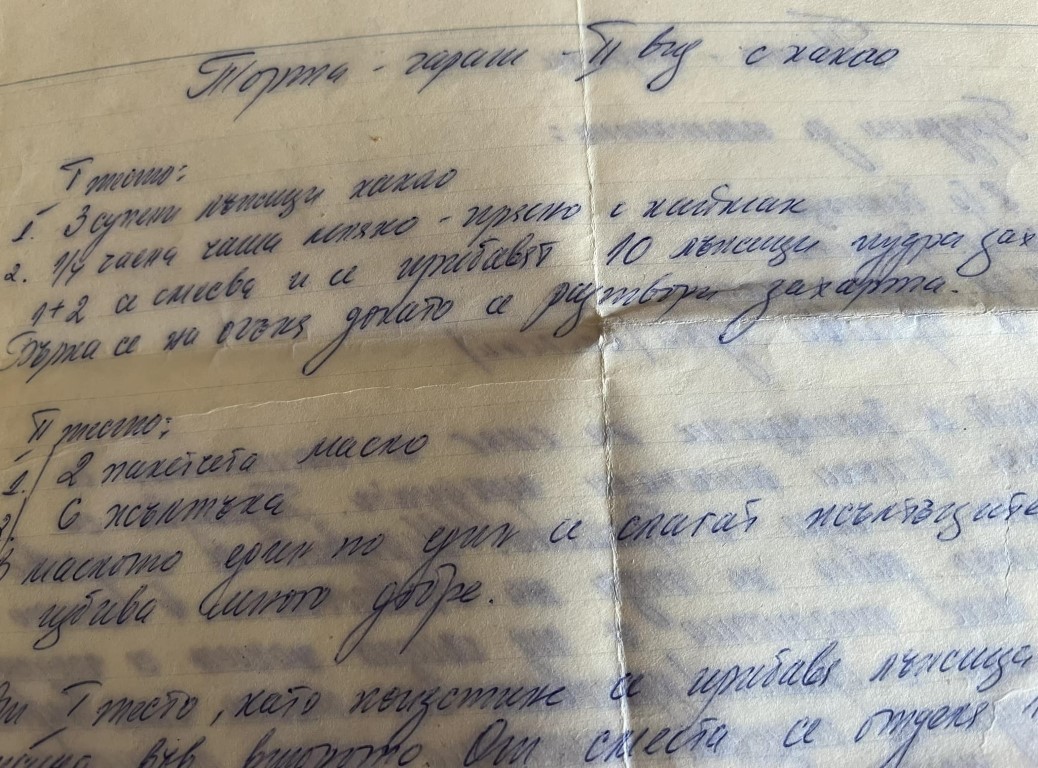 Торта - гараш - II вид с какао
I тесто:
1. 3 супени лъжици какао
2. 1/4 чаена чаша мляко - прясно с кипнак
1+2 се смесва и се прибавят 10 лъжици пудра зах
Държа се на огъня докато се разтвори захарта.
II тесто:
1. 2 пакетчета масло
2. 6 жълтъка
В маслото един по един се слагат жълтъците
избива много добре.
I тесто, като поизстине се прибавя лъжица
във второто. От сместа се отделя